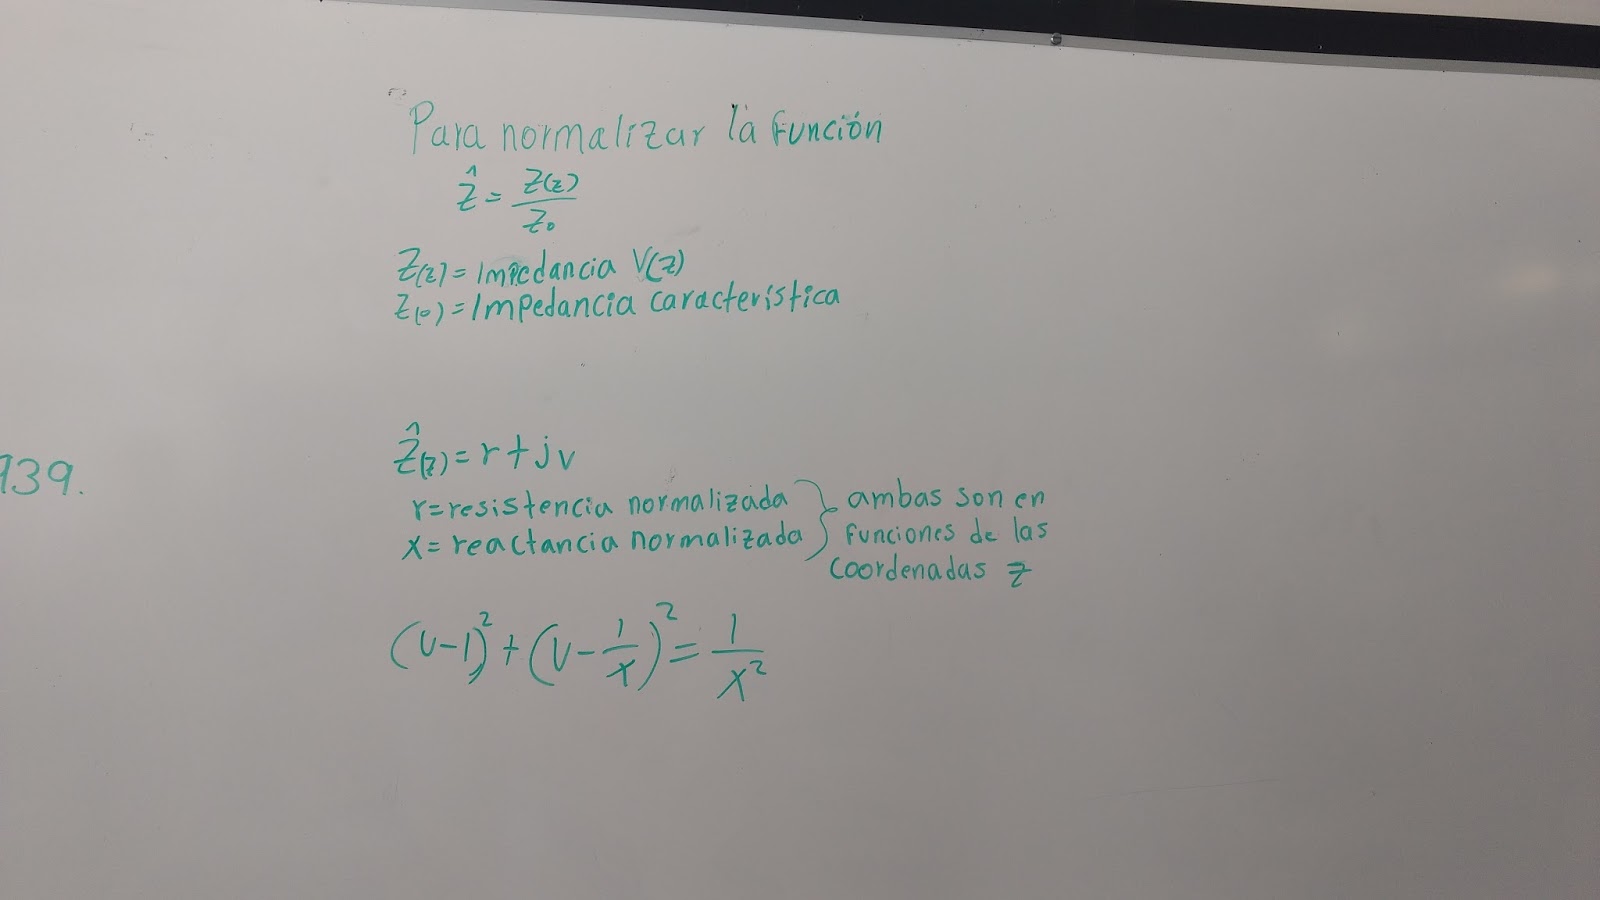 Para normalizar la función
ẑ = Z(z) / Z₀
Z(z) = Impedancia V(z)
Z(o) = Impedancia característica
939.
Ẑ(z) = r + jv
r = resistencia normalizada } ambas son en
x = reactancia normalizada } funciones de las
coordenadas z
(v-1)² + (v - 1/x)² = 1/x²